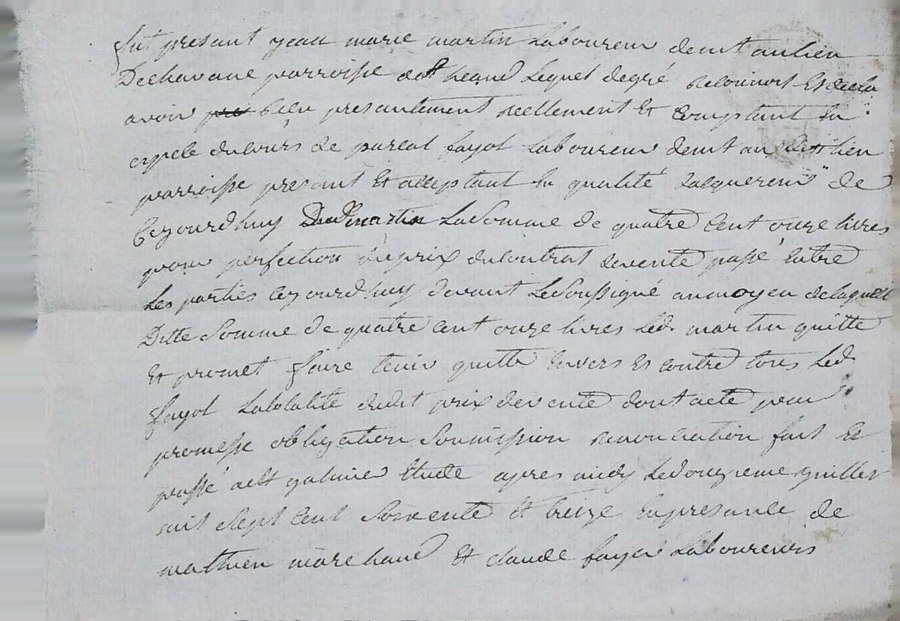 fut presant jean marie martin Laboureur demt au lieu
De chavane parroisse de st heand Lequel de gré a Reconnu Et declaré
avoir pre Reçu presantement reellement Et Comptant en
espece du cours de pareal fayol Laboureur demt au dit lieu
parroisse presant Et acceptant En qualité dacquereur de
Cejourdhuy Dud martin La Somme de quatre Cent onze livres
pour perfection du prix du Contrat de vente passé Entre
Les parties Cejourdhuy devant Le Soussigné au moyen de laquelle
Ditte Somme de quatre Cent onze livres Led. martin quitte
Et promet faire tenir quitte Envers Et contre tous Led.
fayol La totalité dudit prix de vente dont acte pour
promesse obligation Soumission renonciation fait Et
passé a st galmier Etude apres midy Le douzieme juillet
mil Sept Cent Soixente Et treize En presance de
mathieu marchand Et claude fayet Laboureurs